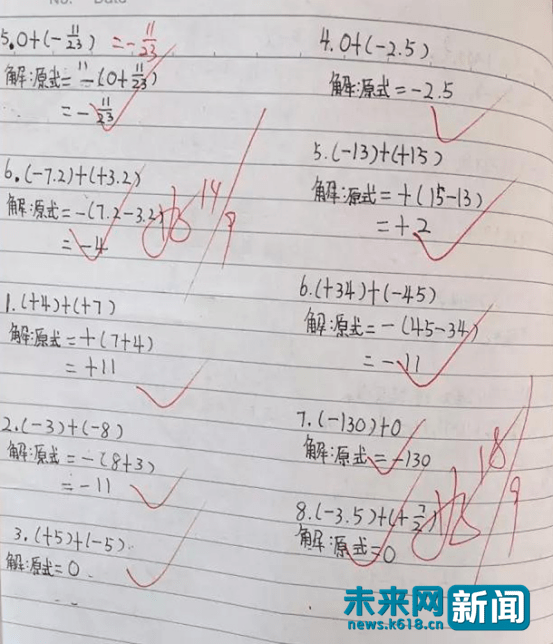 No. Data
5.0+(-11/23) =-11/23
解:原式=-(0+11/23)
=-11/23
6.(-7.2)+(+3.2)
解:原式=-(7.2-3.2)
=-4
14/9
1.(+4)+(+7)
解:原式=+(7+4)
=+11
2.(-3)+(-8)
解:原式=-(8+3)
=-11
3.(+5)+(-5)
解:原式=0
4.0+(-2.5)
解:原式=-2.5
5.(-13)+(+15)
解:原式=+(15-13)
=+2
6.(+34)+(-45)
解:原式=-(45-34)
=-11
7.(-130)+0
解:原式=-130
8.(-3.5)+(+7/2)
解:原式=0
18/9
未来网 新闻
news.k618.cn